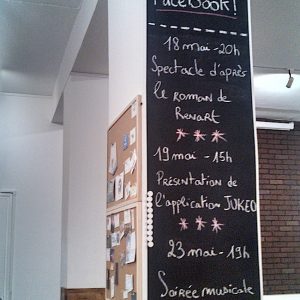 Facebook!
18 mai - 20h
Spectacle d'après
le roman de
Renart
***
19 mai - 15h
Présentation de
l'application JUKEO
***
23 mai - 19h
Soirée musicale